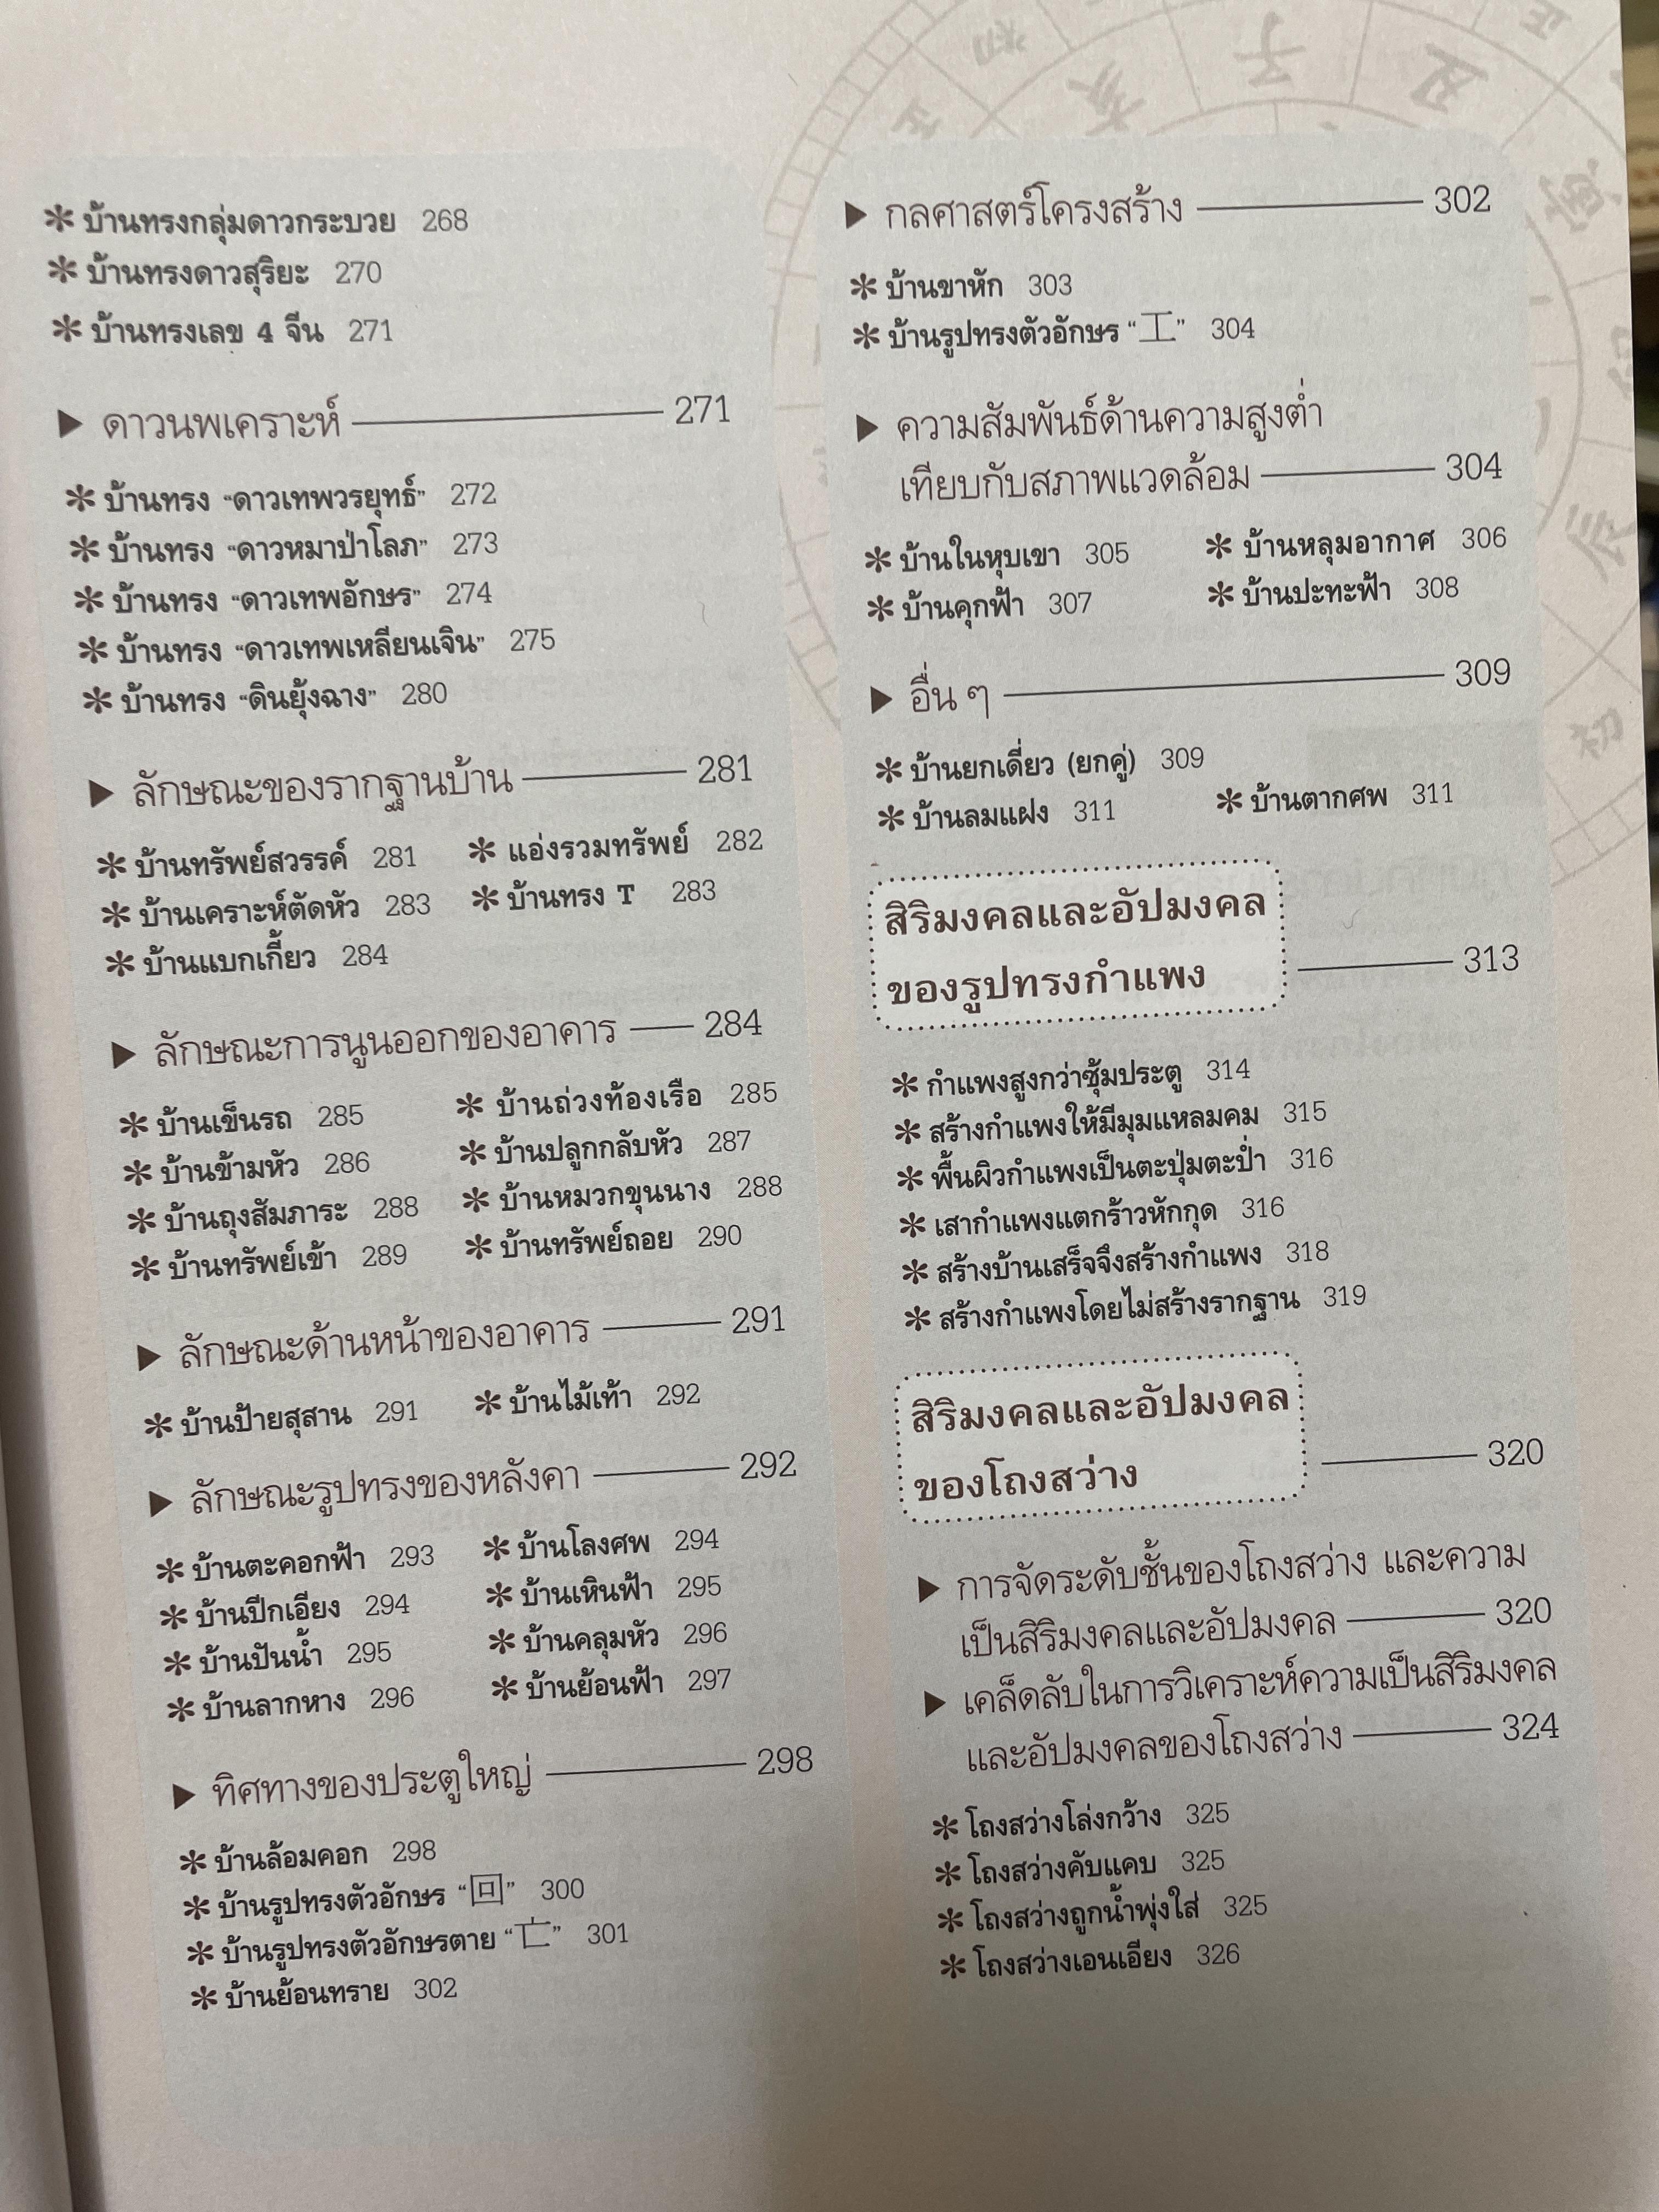 ✻ บ้านทรงกลุ่มดาวกระบวย 268
✻ บ้านทรงดาวสุริยะ 270
✻ บ้านทรงเลข 4 จีน 271
▶ ดาวนพเคราะห์ 271
✻ บ้านทรง “ดาวเทพวรยุทธ์” 272
✻ บ้านทรง “ดาวหมาป่าโลภ” 273
✻ บ้านทรง “ดาวเทพอักษร” 274
✻ บ้านทรง “ดาวเทพเหลียนเจิน” 275
✻ บ้านทรง “ดินยุ้งฉาง” 280
▶ ลักษณะของรากฐานบ้าน 281
✻ บ้านทรัพย์สวรรค์ 281 ✻ แอ่งรวมทรัพย์ 282
✻ บ้านเคราะห์ตัดหัว 283 ✻ บ้านทรง T 283
✻ บ้านแบกเกี้ยว 284
▶ ลักษณะการนูนออกของอาคาร 284
✻ บ้านเข็นรถ 285 ✻ บ้านถ่วงท้องเรือ 285
✻ บ้านข้ามหัว 286 ✻ บ้านปลูกกลับหัว 287
✻ บ้านถุงสัมภาระ 288 ✻ บ้านหมวกขุนนาง 288
✻ บ้านทรัพย์เข้า 289 ✻ บ้านทรัพย์ถอย 290
▶ ลักษณะด้านหน้าของอาคาร 291
✻ บ้านป้ายสุสาน 291 ✻ บ้านไม้เท้า 292
▶ ลักษณะรูปทรงของหลังคา 292
✻ บ้านตะคอกฟ้า 293 ✻ บ้านโลงศพ 294
✻ บ้านปีกเอียง 294 ✻ บ้านเหินฟ้า 295
✻ บ้านปันน้ำ 295 ✻ บ้านคลุมหัว 296
✻ บ้านลากหาง 296 ✻ บ้านย้อนฟ้า 297
▶ ทิศทางของประตูใหญ่ 298
✻ บ้านล้อมคอก 298
✻ บ้านรูปทรงตัวอักษร “回” 300
✻ บ้านรูปทรงตัวอักษรตาย “亡” 301
✻ บ้านย้อนทราย 302
▶ กลศาสตร์โครงสร้าง 302
✻ บ้านขาหัก 303
✻ บ้านรูปทรงตัวอักษร “工” 304
▶ ความสัมพันธ์ด้านความสูงต่ำ
เทียบกับสภาพแวดล้อม 304
✻ บ้านในหุบเขา 305 ✻ บ้านหลุมอากาศ 306
✻ บ้านคุกฟ้า 307 ✻ บ้านปะทะฟ้า 308
▶ อื่น ๆ 309
✻ บ้านยกเดี่ยว (ยกคู่) 309
✻ บ้านลมแฝง 311 ✻ บ้านตากศพ 311
สิริมงคลและอัปมงคล
ของรูปทรงกำแพง 313
✻ กำแพงสูงกว่าซุ้มประตู 314
✻ สร้างกำแพงให้มีมุมแหลมคม 315
✻ พื้นผิวกำแพงเป็นตะปุ่มตะป่ำ 316
✻ เสากำแพงแตกร้าวหักกุด 316
✻ สร้างบ้านเสร็จจึงสร้างกำแพง 318
✻ สร้างกำแพงโดยไม่สร้างรากฐาน 319
สิริมงคลและอัปมงคล
ของโถงสว่าง 320
▶ การจัดระดับชั้นของโถงสว่าง และความ
เป็นสิริมงคลและอัปมงคล 320
▶ เคล็ดลับในการวิเคราะห์ความเป็นสิริมงคล
และอัปมงคลของโถงสว่าง 324
✻ โถงสว่างโล่งกว้าง 325
✻ โถงสว่างคับแคบ 325
✻ โถงสว่างถูกน้ำพุ่งใส่ 325
✻ โถงสว่างเอนเอียง 326